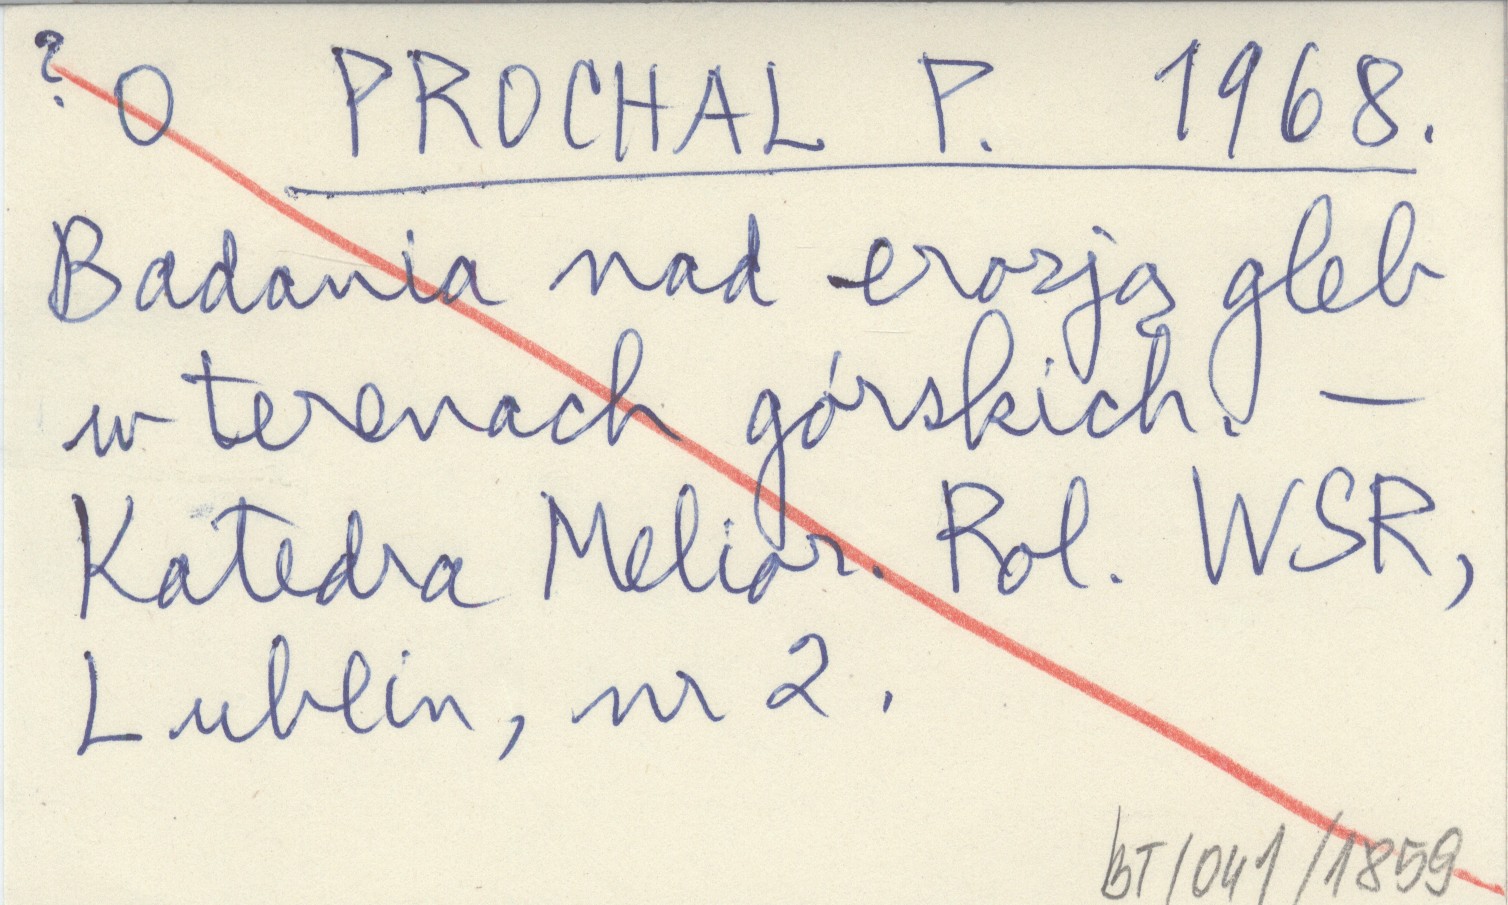 ? O PROCHAL P. 1968.
Badania nad erozją gleb
w terenach górskich. —
Katedra Melior. Rol. WSR,
Lublin, nr 2.
BT/041/1859